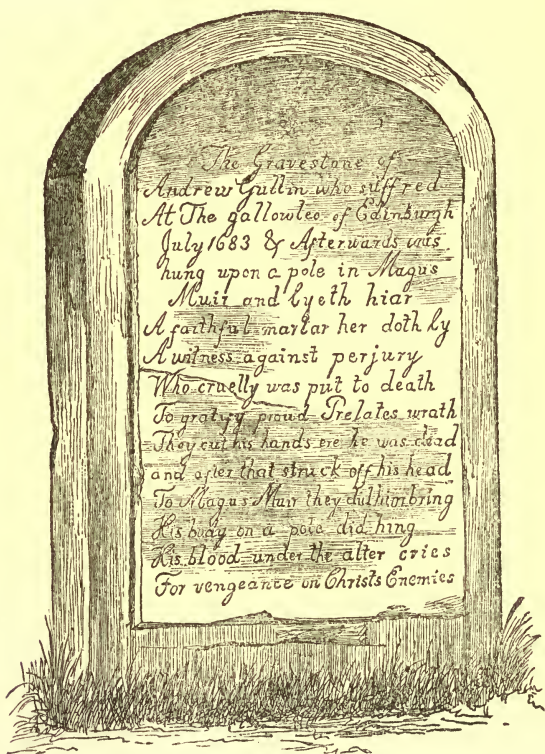 The Gravestone of
Andrew Gullin who suffred
At The gallowleo of Edinburgh
July 1683 & Afterwards was
hung upon a pole in Magus
Muir and lyeth hiar
A faithful martar her doth ly
A witness against perjury
Who cruelly was put to death
To gratify proud Prelates wrath
They cut his hands ere he was dead
and after that struck off his head
To Magus Muir they did him bring
His body on a pole did hing
His blood under the alter cries
For vengeance on Christs Enemies